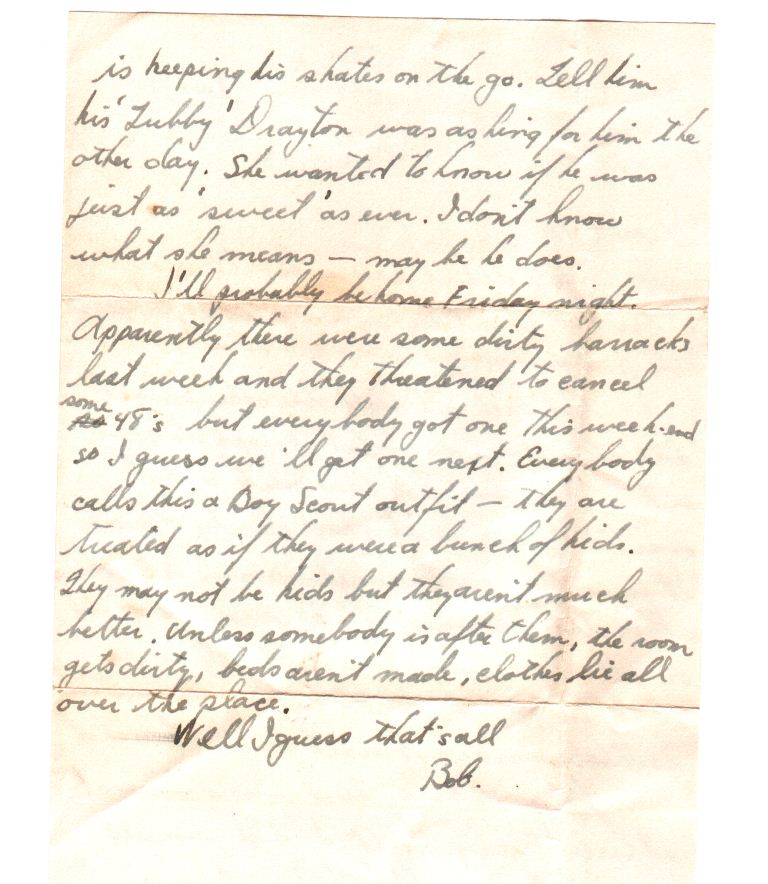 is keeping his skates on the go. Tell him
his 'Tubby' Drayton was asking for him the
other day. She wanted to know if he was
just as 'sweet' as ever. I don't know
what she means — may be he does.
I'll probably be home Friday night.
Apparently there were some dirty barracks
last week and they threatened to cancel
some 48's but everybody got one this week-end
so I guess we'll get one next. Everybody
calls this a Boy Scout outfit — they are
treated as if they were a bunch of kids.
They may not be kids but they aren't much
better. Unless somebody is after them, the room
gets dirty, beds aren't made, clothes lie all
over the place.
Well I guess that's all
Bob.